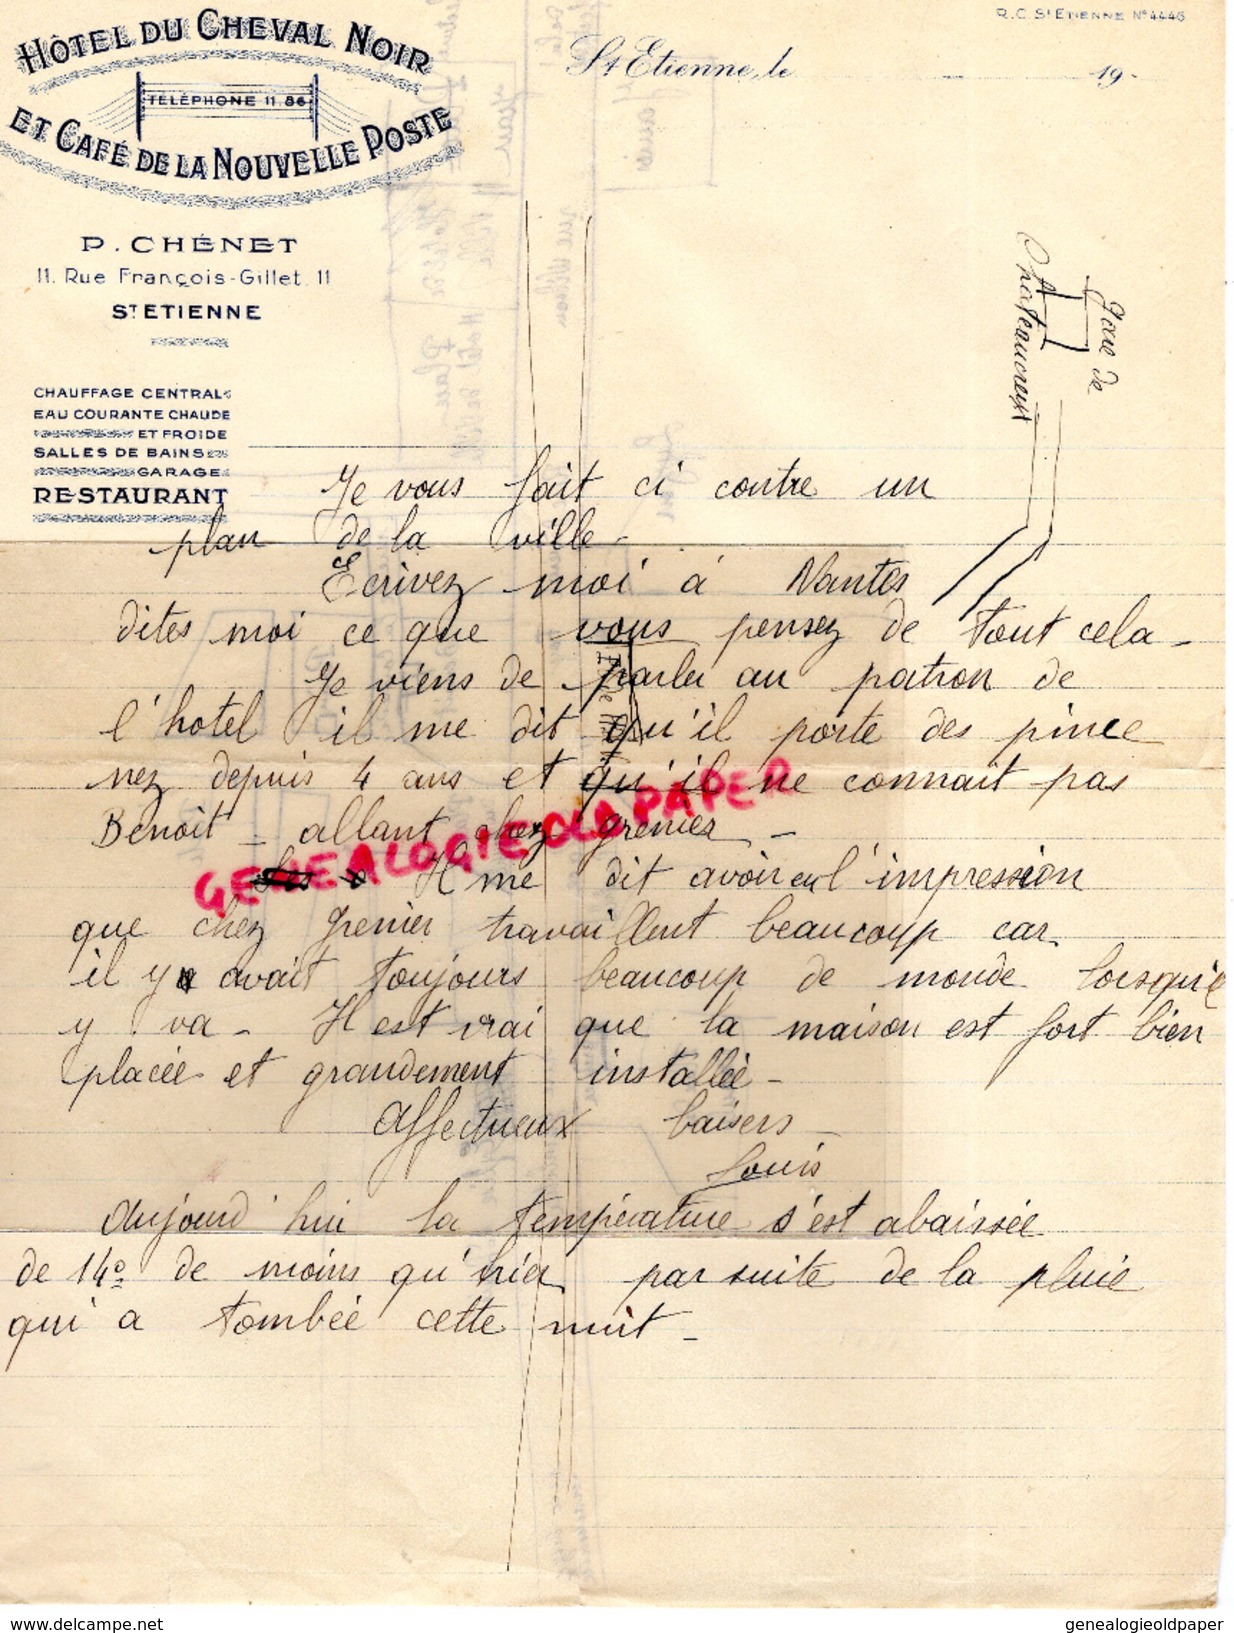 R.C. ST ETIENNE N° 4446
HÔTEL DU CHEVAL NOIR
TÉLÉPHONE 11.86
ET CAFÉ DE LA NOUVELLE POSTE
St Etienne, le 19
P. CHÉNET
11. Rue François-Gillet. 11
ST ETIENNE
CHAUFFAGE CENTRAL
EAU COURANTE CHAUDE
ET FROIDE
SALLES DE BAINS
GARAGE
RESTAURANT
Gare de
Chateaucreux
Je vous fait ci contre un
plan de la ville -
Ecrivez moi à Nantes
dites moi ce que vous pensez de tout cela -
Je viens de parler au patron de
l'hotel il me dit qu'il porte des pince
nez depuis 4 ans et qu'il ne connait pas
Benoît - allant chez grenier -
Il me dit avoir eu l'impression
que chez Grenier travaillent beaucoup car
il y avait toujours beaucoup de monde lorsqu'il
y va - Il est vrai que la maison est fort bien
placée et grandement installée -
Affectueux baisers -
Louis
Aujourd'hui la température s'est abaissée
de 14° de moins qu'hier par suite de la pluie
qui a tombée cette nuit -
GENEALOGIEOLDPAPER
www.delcampe.net
genealogieoldpaper